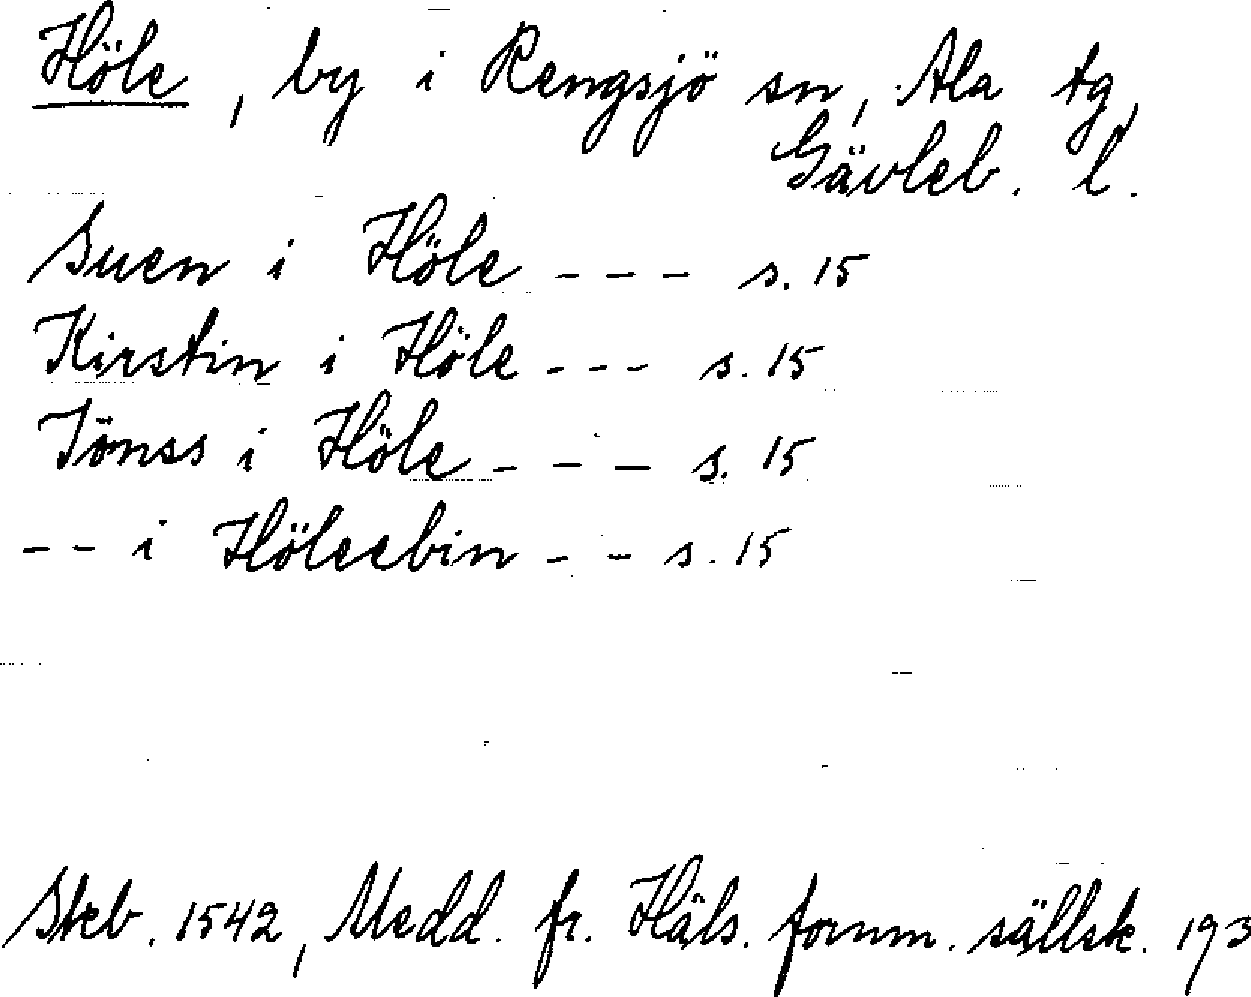 Höle, by i Rengsjö sn, Ala tg,
Gävleb. l.
Suen i Höle - - - s. 15
Kirstin i Höle - - - s. 15
Jönss i Höle - - - s. 15
- - i Höleebin - - s. 15
Skb. 1542, Medd. fr. Häls. fornm. sällsk. 193